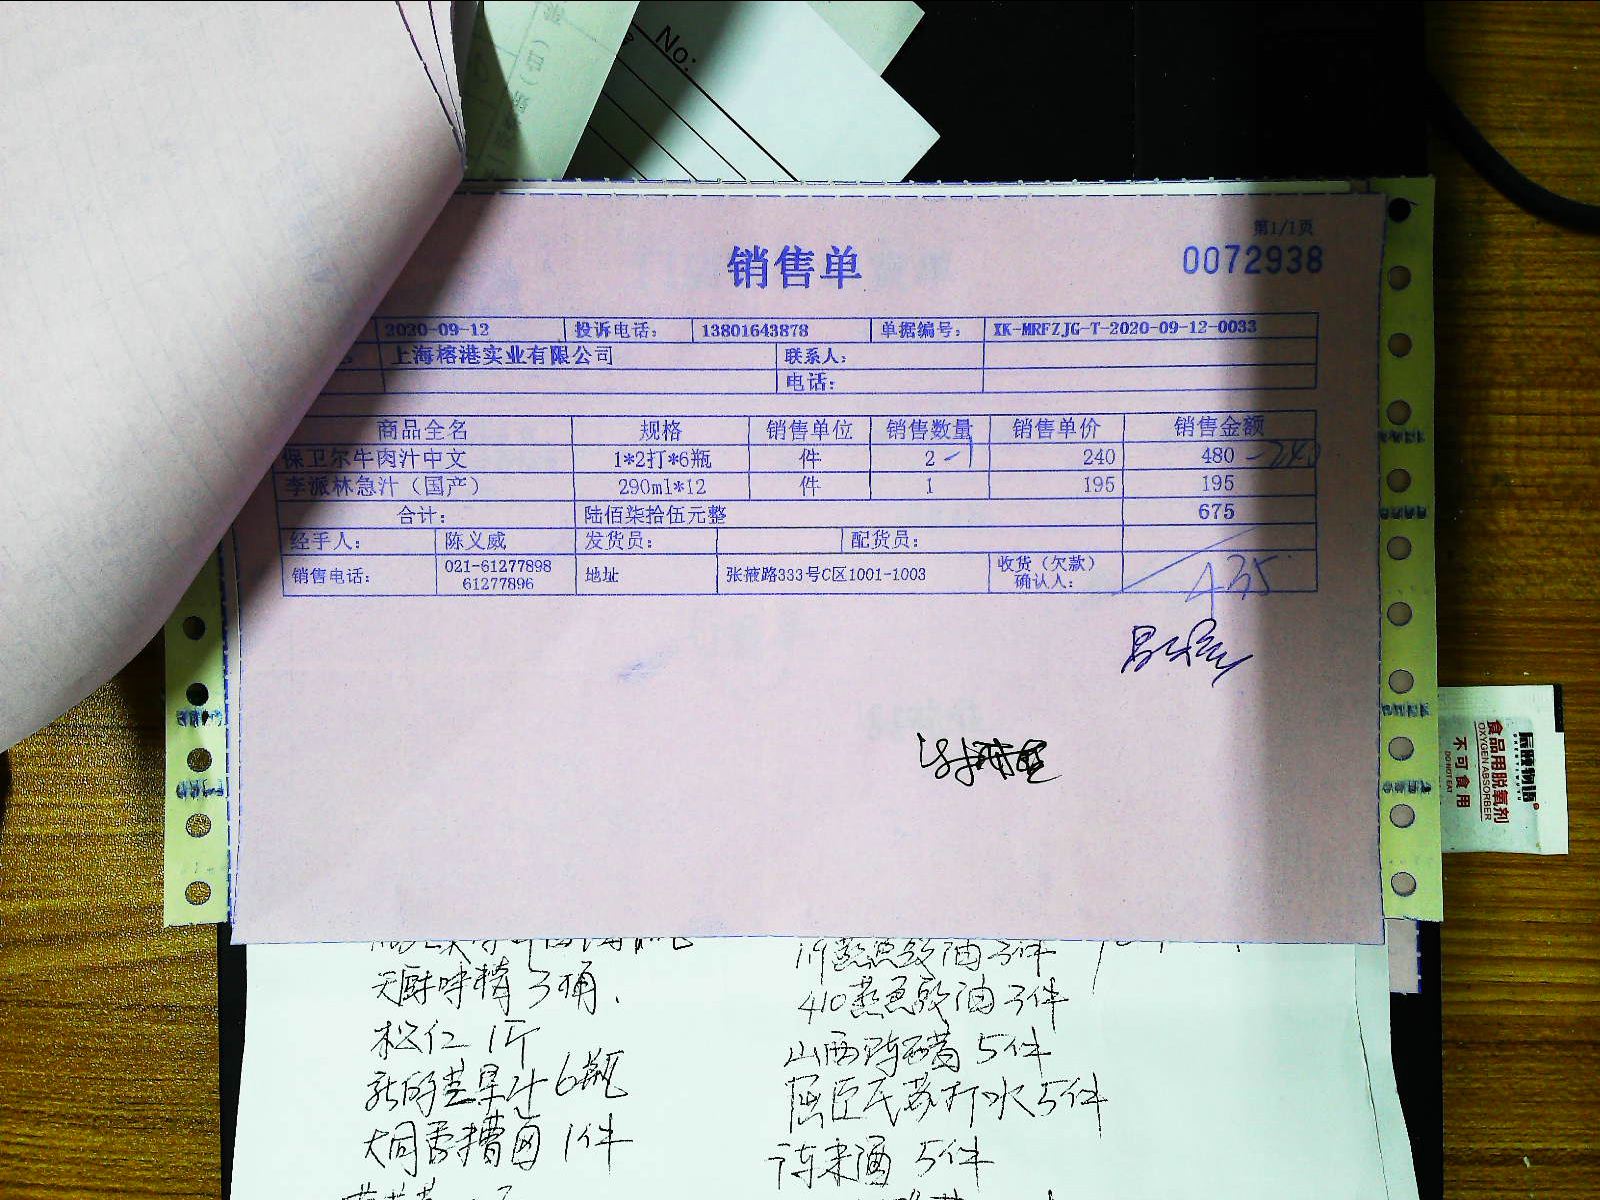 No:
第1/1页
销售单
0072938
2020-09-12 投诉电话: 13801643878 单据编号: XK-MRFZJG-T-2020-09-12-0033
上海榕港实业有限公司 联系人:
电话:
商品全名 规格 销售单位 销售数量 销售单价 销售金额
保卫尔牛肉汁中文 1*2打*6瓶 件 2 -1 240 480 -240
李派林急汁（国产） 290ml*12 件 1 195 195
合计: 陆佰柒拾伍元整 675
经手人: 陈义威 发货员: 配货员:
销售电话: 021-61277898 61277896 地址 张掖路333号C区1001-1003 收货（欠款）确认人:
435
食品用脱氧剂
OXYGEN ABSORBER
不可食用
DO NOT EAT
天厨味精 3桶.
松仁 1斤
6瓶
1件
蒸鱼豉油 3件
410蒸鱼豉油 3件
山西陈醋 5件
屈臣氏苏打水 5件
5件